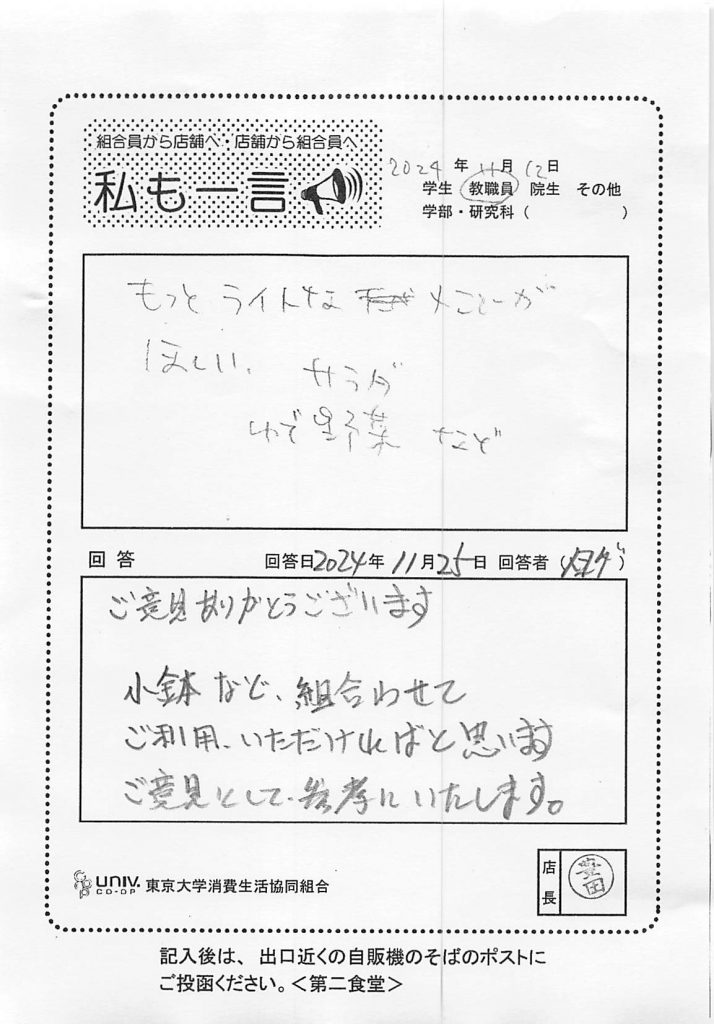 組合員から店舗へ・店舗から組合員へ
私も一言
2024年11月12日
学生 教職員 院生 その他
学部・研究科（ ）
もっとライトな メニューが
ほしい、 サラダ
ゆで野菜 など
回答 回答日2024年11月25日 回答者（ ）
ご意見ありがとうございます
小鉢など、組合わせて
ご利用、いただければと思います
ご意見として、参考にいたします。
UNIV. CO-OP 東京大学消費生活協同組合
店長 豊田
記入後は、出口近くの自販機のそばのポストに
ご投函ください。＜第二食堂＞